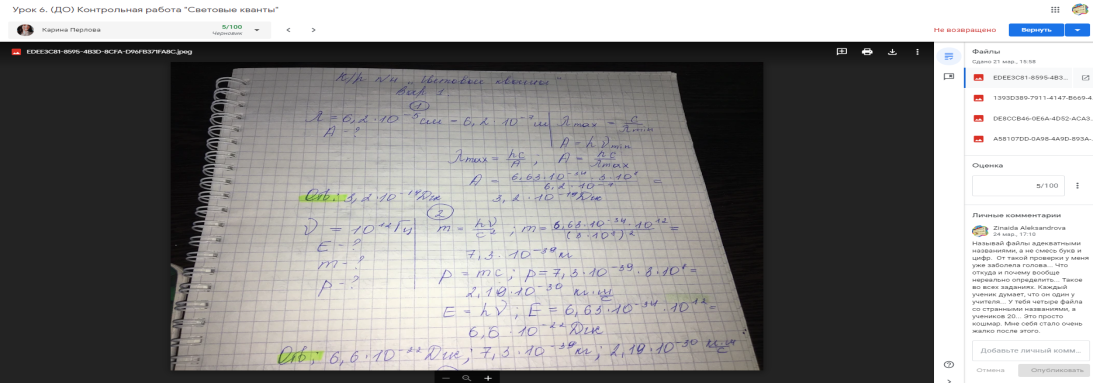 Урок 6. (ДО) Контрольная работа "Световые кванты"
Карина Перлова
5/100
Черновик
Не возвращено
Вернуть
EDEE3C81-8595-4B3D-8CFA-D96FB371FA8C.jpeg
К/р №4 "Световые кванты"
Вар 1
1
λ = 6,2·10⁻⁵ см = 6,2·10⁻⁷ м
A - ?
λmax = c/νmin
A = hνmin
λmax = hc/A ; A = hc/λmax
A = 6,63·10⁻³⁴·3·10⁸ / 6,2·10⁻⁷ =
3,2·10⁻¹⁹ Дж
Отв: 3,2·10⁻¹⁹ Дж
2
ν = 10¹² Гц
E - ?
m - ?
p - ?
m = hν/c² ; m = 6,63·10⁻³⁴·10¹² / (3·10⁸)² =
7,3·10⁻³⁹ кг
p = mc ; p = 7,3·10⁻³⁹·3·10⁸ =
2,19·10⁻³⁰ кг·м/с
E = hν ; E = 6,63·10⁻³⁴·10¹² =
6,6·10⁻²² Дж
Отв: 6,6·10⁻²² Дж ; 7,3·10⁻³⁹ кг ; 2,19·10⁻³⁰ кг·м/с
Файлы
Сдано 21 мар., 15:58
EDEE3C81-8595-4B3...
1393D389-7911-4147-B669-4...
DE8CCB46-0E6A-4D52-ACA3...
A58107DD-0A98-4A9D-893A-...
Оценка
5/100
Личные комментарии
Zinaida Aleksandrova
24 мар., 17:13
Называй файлы адекватными
названиями, а не смесь букв и
цифр. От такой проверки у меня
уже заболела голова... Что
откуда и почему вообще
нереально определить... Такое
во всех заданиях. Каждый
ученик думает, что он один у
учителя... У тебя четыре файла
со странными названиями, а
учеников 20... Это просто
кошмар. Мне себя стало очень
жалко после этого.
Добавьте личный комм...
Отмена
Опубликовать